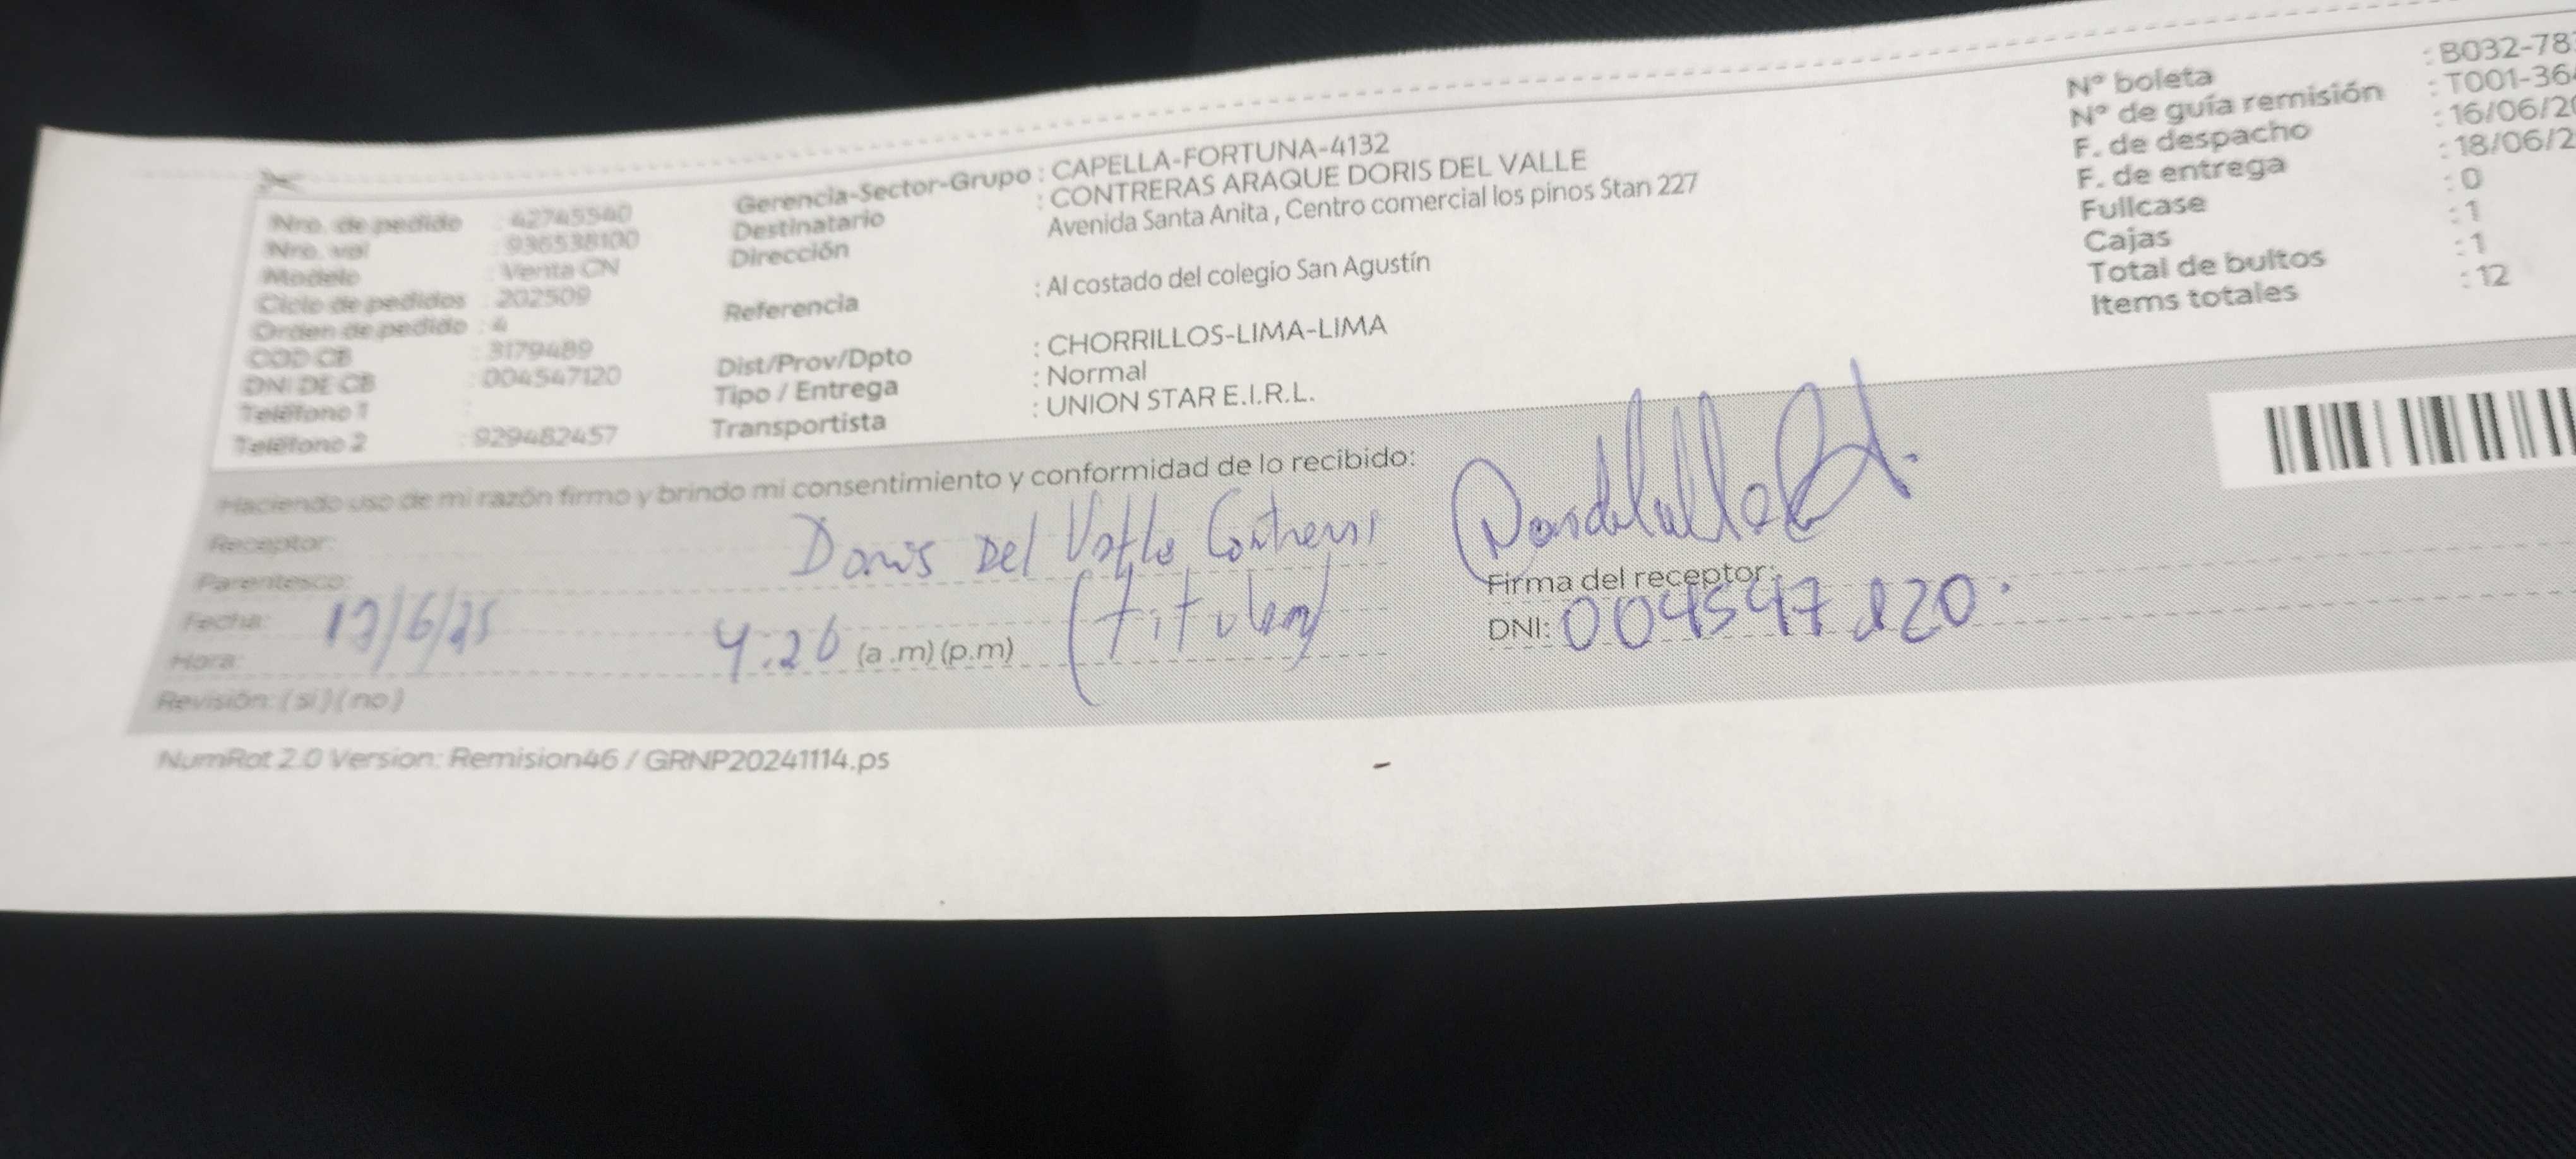 Nro. de pedido : 42745540
Nro. val : 936538100
Modelo : Venta CN
Ciclo de pedidos : 202509
Orden de pedido : 4
COD CB : 3179489
DNI DE CB : 004547120
Teléfono 1 :
Teléfono 2 : 929482457
Gerencia-Sector-Grupo : CAPELLA-FORTUNA-4132
Destinatario : CONTRERAS ARAQUE DORIS DEL VALLE
Dirección : Avenida Santa Anita , Centro comercial los pinos Stan 227
Referencia : Al costado del colegio San Agustín
Dist/Prov/Dpto : CHORRILLOS-LIMA-LIMA
Tipo / Entrega : Normal
Transportista : UNION STAR E.I.R.L.
N° boleta : B032-78
N° de guía remisión : T001-36
F. de despacho : 16/06/2
F. de entrega : 18/06/2
Fullcase : 0
Cajas : 1
Total de bultos : 1
Items totales : 12
Haciendo uso de mi razón firmo y brindo mi consentimiento y conformidad de lo recibido:
Receptor: Doris Del Valle Contreras
Parentesco: (titular)
Fecha: 17/6/25
Hora: 4:26 (a .m) (p.m)
Revisión: ( si ) ( no )
Firma del receptor:
DNI: 004547120.
NumRot 2.0 Version: Remision46 / GRNP20241114.ps